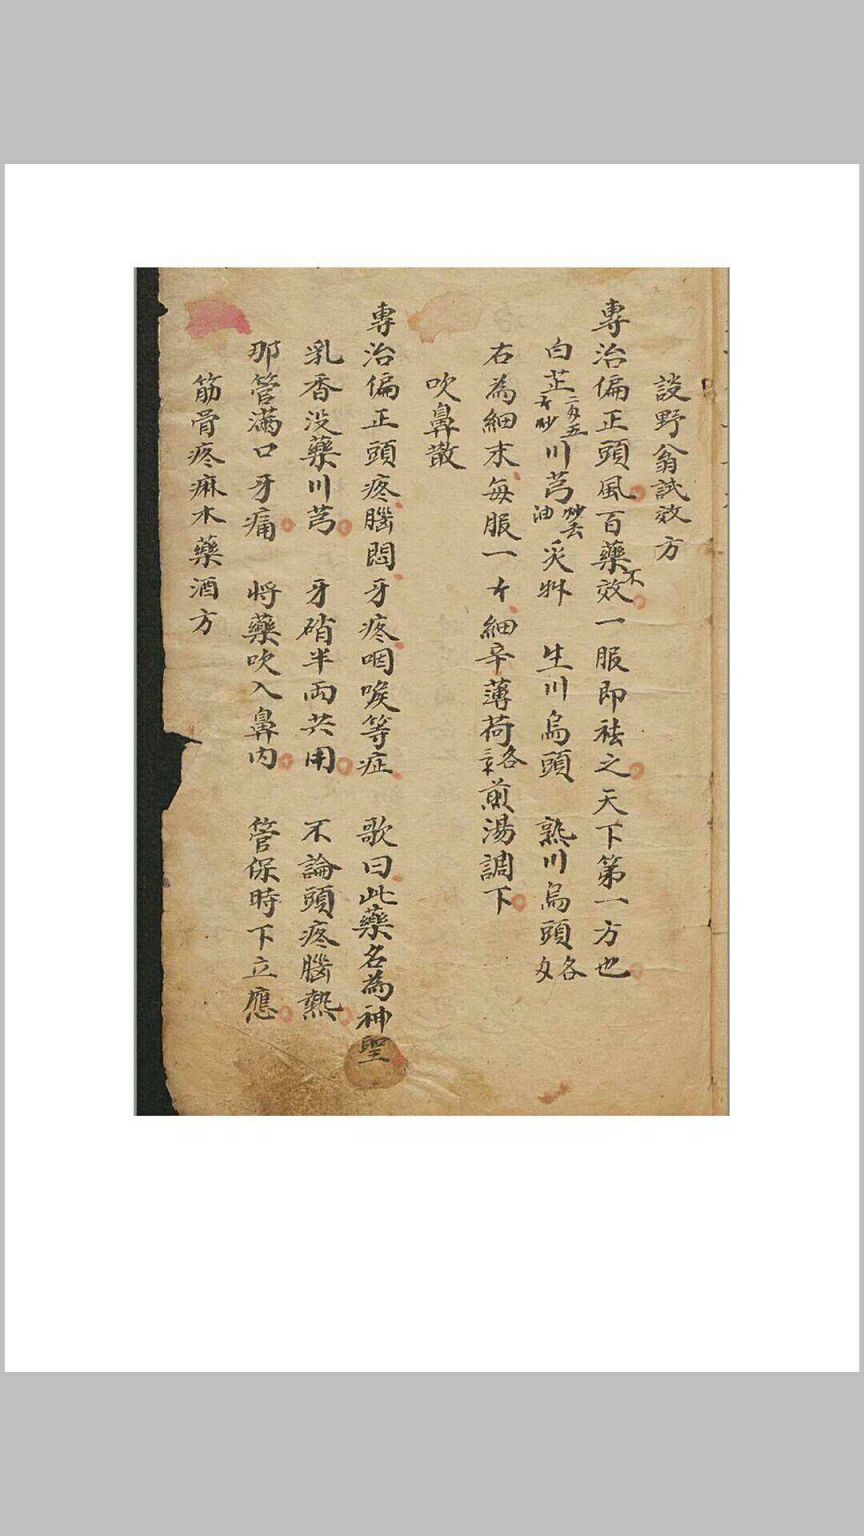 設野翁試效方
專治偏正頭風百藥不效一服即祛之天下第一方也
白芷二分五 炒 川芎炒去油 炙艸 生川烏頭 熟川烏頭各
右為細末每服一 細辛薄荷各 煎湯調下
吹鼻散
專治偏正頭疼腦悶牙疼咽喉等症 歌曰此藥名為神聖
乳香没藥川芎 牙硝半兩共用 不論頭疼腦熱
那管滿口牙痛 将藥吹入鼻内 管保時下立應
筋骨疼麻木藥酒方